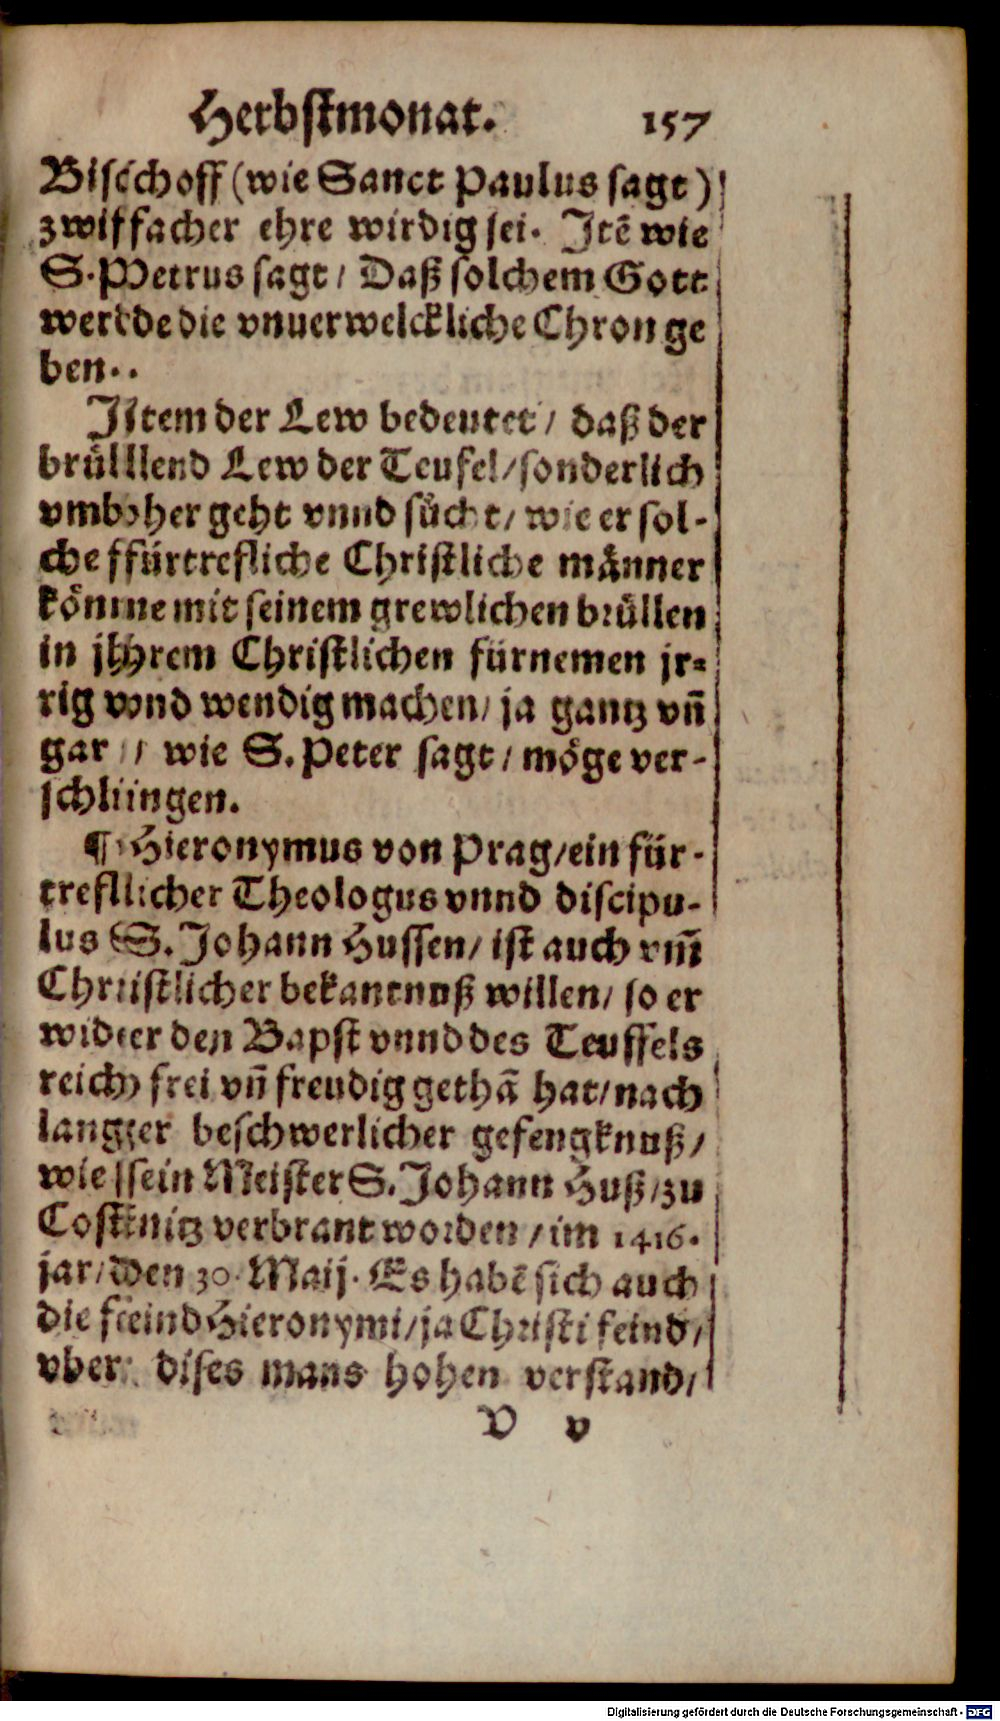 Herbstmonat. 157
Bischoff (wie Sanct Paulus sagt)
zwiffacher ehre wirdig sei. Itē wie
S. Petrus sagt / Daß solchem Gott
werde die vnuerwelckliche Chron ge
ben..
Item der Lew bedeutet / daß der
brüllend Lew der Teufel / sonderlich
vmbher geht vnnd sůcht / wie er sol-
che fürtrefliche Christliche männer
könne mit seinem grewlichen brüllen
in jhrem Christlichen fürnemen jr-
rig vnd wendig machen / ja gantz vñ
gar / wie S. Peter sagt / möge ver-
schlingen.
¶ Hieronymus von Prag / ein für-
treflicher Theologus vnnd discipu-
lus S. Johann Hussen / ist auch vm̄
Christlicher bekantnuß willen / so er
wider den Bapst vnnd des Teuffels
reich frei vñ freudig gethā hat / nach
langer beschwerlicher gefengknuß /
wie sein Meister S. Johann Huß / zu
Costnitz verbrant worden / im 1416.
jar / den 30. Maij. Es habē sich auch
die feind Hieronymi / ja Christi feind /
vber dises mans hohen verstand /
V v
Digitalisierung gefördert durch die Deutsche Forschungsgemeinschaft - DFG